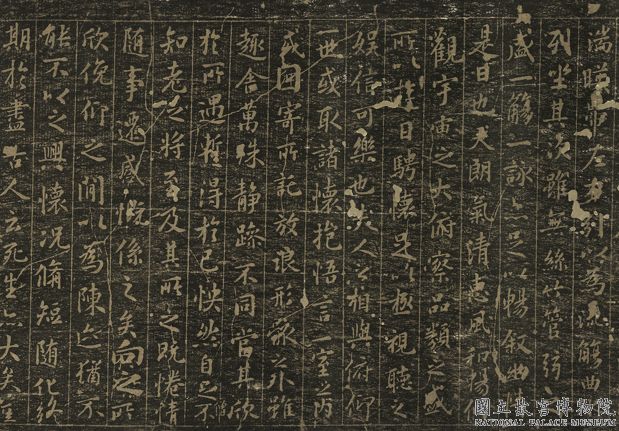 湍暎帶左右引以為流觴曲
列坐其次雖無絲竹管弦之
盛一觴一詠亦足以暢叙幽情
是日也天朗氣清惠風和暢
觀宇宙之大俯察品類之盛
所以遊目騁懷足以極視聽之
娛信可樂也夫人之相與俯仰
一世或取諸懷抱悟言一室之內
或因寄所託放浪形骸之外雖
趣舍萬殊静躁不同當其欣
於所遇蹔得於己怏然自足不
知老之將至及其所之既惓情
随事遷感慨係之矣向之所
欣俛仰之間以為陳迹猶不
能不以之興懷况脩短随化終
期於盡古人云死生亦大矣豈
國立故宮博物院
NATIONAL PALACE MUSEUM